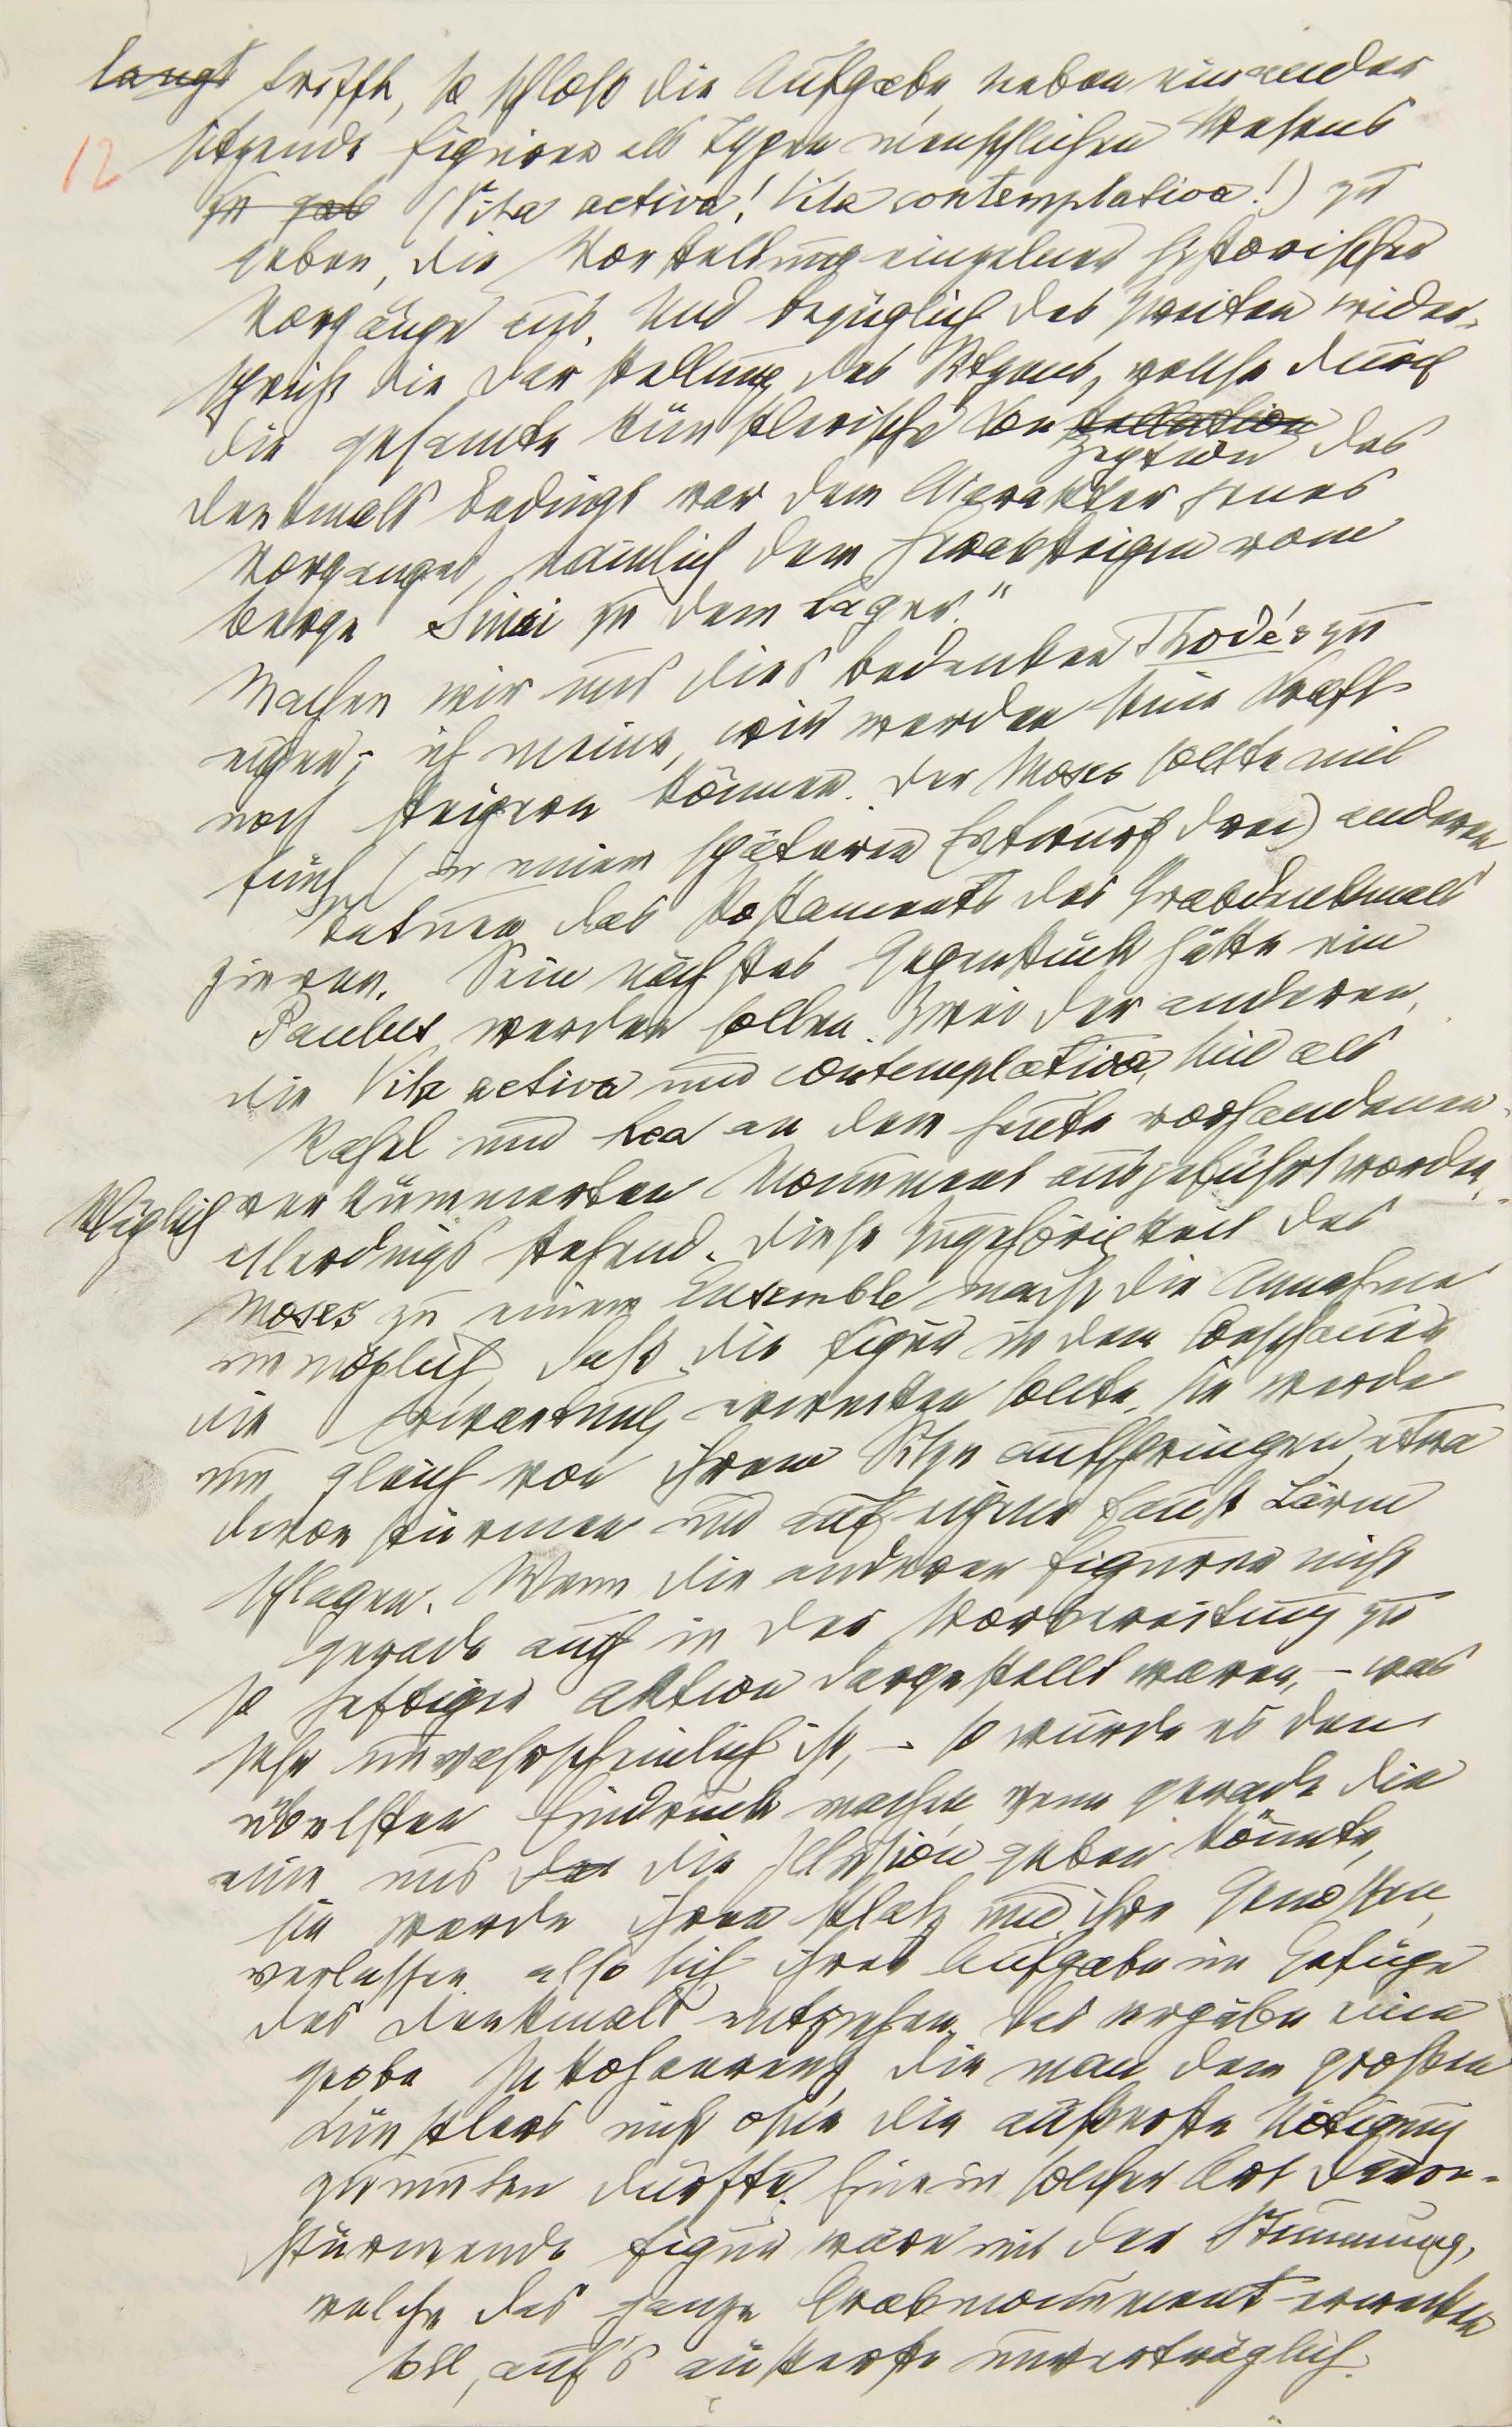 langt trifft, so schloß die Aufgabe, neben einander
12 sitzende Figuren als Typen menschlichen Wesens
zu gab (Vita activa! Vita contemplativa!) zu
geben, die Vorstellung einzelner historischer
Vorgänge aus. Und bezüglich des Zweiten wider-
spricht die Darstellung des Sitzens, welche durch
die gesamte künstlerische Konstellation
zeption des
Denkmals bedingt war dem Charakter jenes
Vorganges, nämlich dem Herabsteigen vom
Berge Sinai zu dem Lager."
Machen wir uns dies Bedenken Thode's zu
eigen; ich meine, wir werden seine Kraft
noch steigern können. Der Moses sollte mit
fünf (in einem späteren Entwurf drei) anderen
Statuen das Postament des Grabdenkmals
zieren. Sein nächstes Gegenstück hätte ein
Paulus werden sollen. Zwei der anderen,
die Vita activa und contemplativa sind als
Rahel und Lea an dem heute vorhandenen,
kläglich verkümmerten Monument ausgeführt worden,
allerdings stehend. Diese Zugehörigkeit des
Moses zu einem Ensemble macht die Annahme
unmöglich, daß die Figur in dem Beschauer
die Erwartung erwecken sollte, sie werde
nun gleich von ihrem Sitze aufspringen, etwa
davon stürmen und auf eigene Faust Lärm
schlagen. Wenn die anderen Figuren nicht
gerade auch in der Vorbereitung zu
so heftiger Aktion dargestellt waren, – was
sehr unwahrscheinlich ist, – so würde es den
übelsten Eindruck machen, wenn gerade die
eine uns der die Illusion geben könnte,
sie werde ihren Platz und ihre Genossen
verlassen, also sich ihrer Aufgabe im Gefüge
des Denkmals entziehen. Das ergäbe eine
grobe Inkohärenz, die man dem großen
Künstlers nicht ohne die äußerste Nötigung
zumuten dürfte. Eine in solcher Art davon-
stürmende Figur wäre mit der Stimmung,
welche das ganze Grabmonument erwecken
soll, auf's äußerste unverträglich.